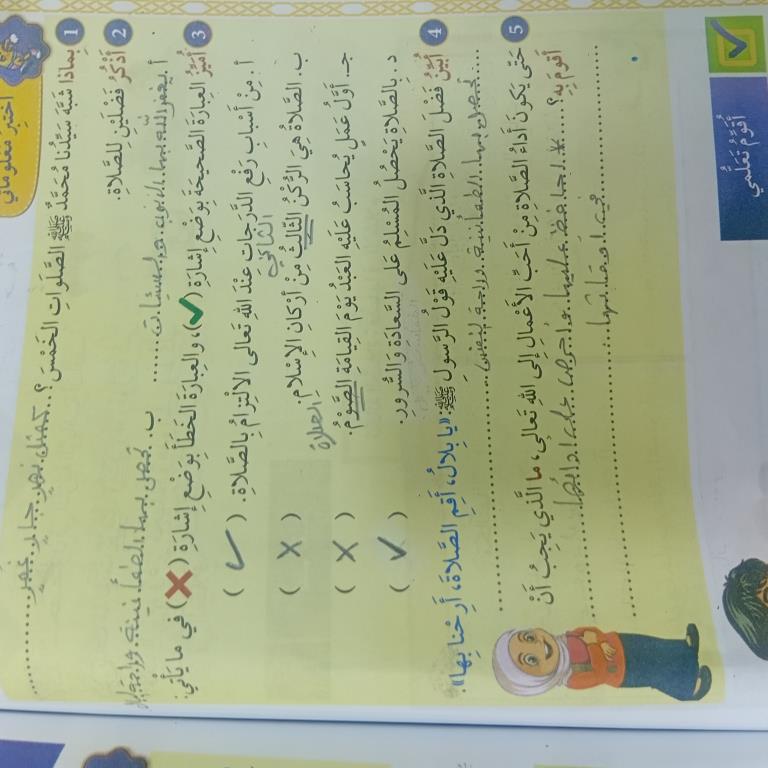 أَخْتَبِرُ مَعْلُوماتي
1 بِماذا شَبَّهَ سَيِّدُنا مُحَمَّدٌ ﷺ الصَّلَواتِ الخَمْسَ؟ كمثل نهر جار غمر
2 أَذْكُرُ فَضْلَيْنِ لِلصَّلاةِ.
أ. يغفر الله بها الذنوب والسيئات
ب. تحصل بها الطمأنينة وراحة
3 أُمَيِّزُ العِبارَةَ الصَّحيحَةَ بِوَضْعِ إِشارَةِ (✓)، والعِبارَةَ الخَطَأَ بِوَضْعِ إِشارَةِ (✗) في ما يَأْتي:
أ. مِنْ أَسْبابِ رَفْعِ الدَّرَجاتِ عِنْدَ اللهِ تَعالى الالْتِزامُ بِالصَّلاةِ. (✓)
الثاني
ب. الصَّلاةُ هِيَ الرُّكْنُ الثّالِثُ مِنْ أَرْكانِ الإِسْلامِ. (✗)
الصلاة
جـ. أَوَّلُ عَمَلٍ يُحاسَبُ عَلَيْهِ العَبْدُ يَوْمَ القِيامَةِ الصَّوْمُ. (✗)
د. بِالصَّلاةِ يَحْصُلُ المُسْلِمُ عَلى السَّعادَةِ وَالسُّرورِ. (✓)
4 أُبَيِّنُ فَضْلَ الصَّلاةِ الَّذي دَلَّ عَلَيْهِ قَوْلُ الرَّسولِ ﷺ: «يا بِلالُ، أَقِمِ الصَّلاةَ، أَرِحْنا بِها».
تحصل بها الطمأنينة وراحة النفس
5 حَتّى يَكونَ أَداءُ الصَّلاةِ مِنْ أَحَبِّ الأَعْمالِ إِلى اللهِ تَعالى، ما الَّذي يَجِبُ أَنْ
أَقومَ بِهِ؟ احافظ عليها واحرص على ادائها
في اوقاتها
أُقَوِّمُ تَعَلُّمي